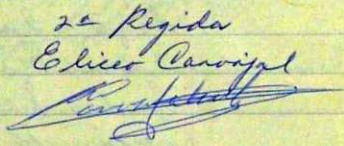 2ª Regida
Eliceo Carvajal